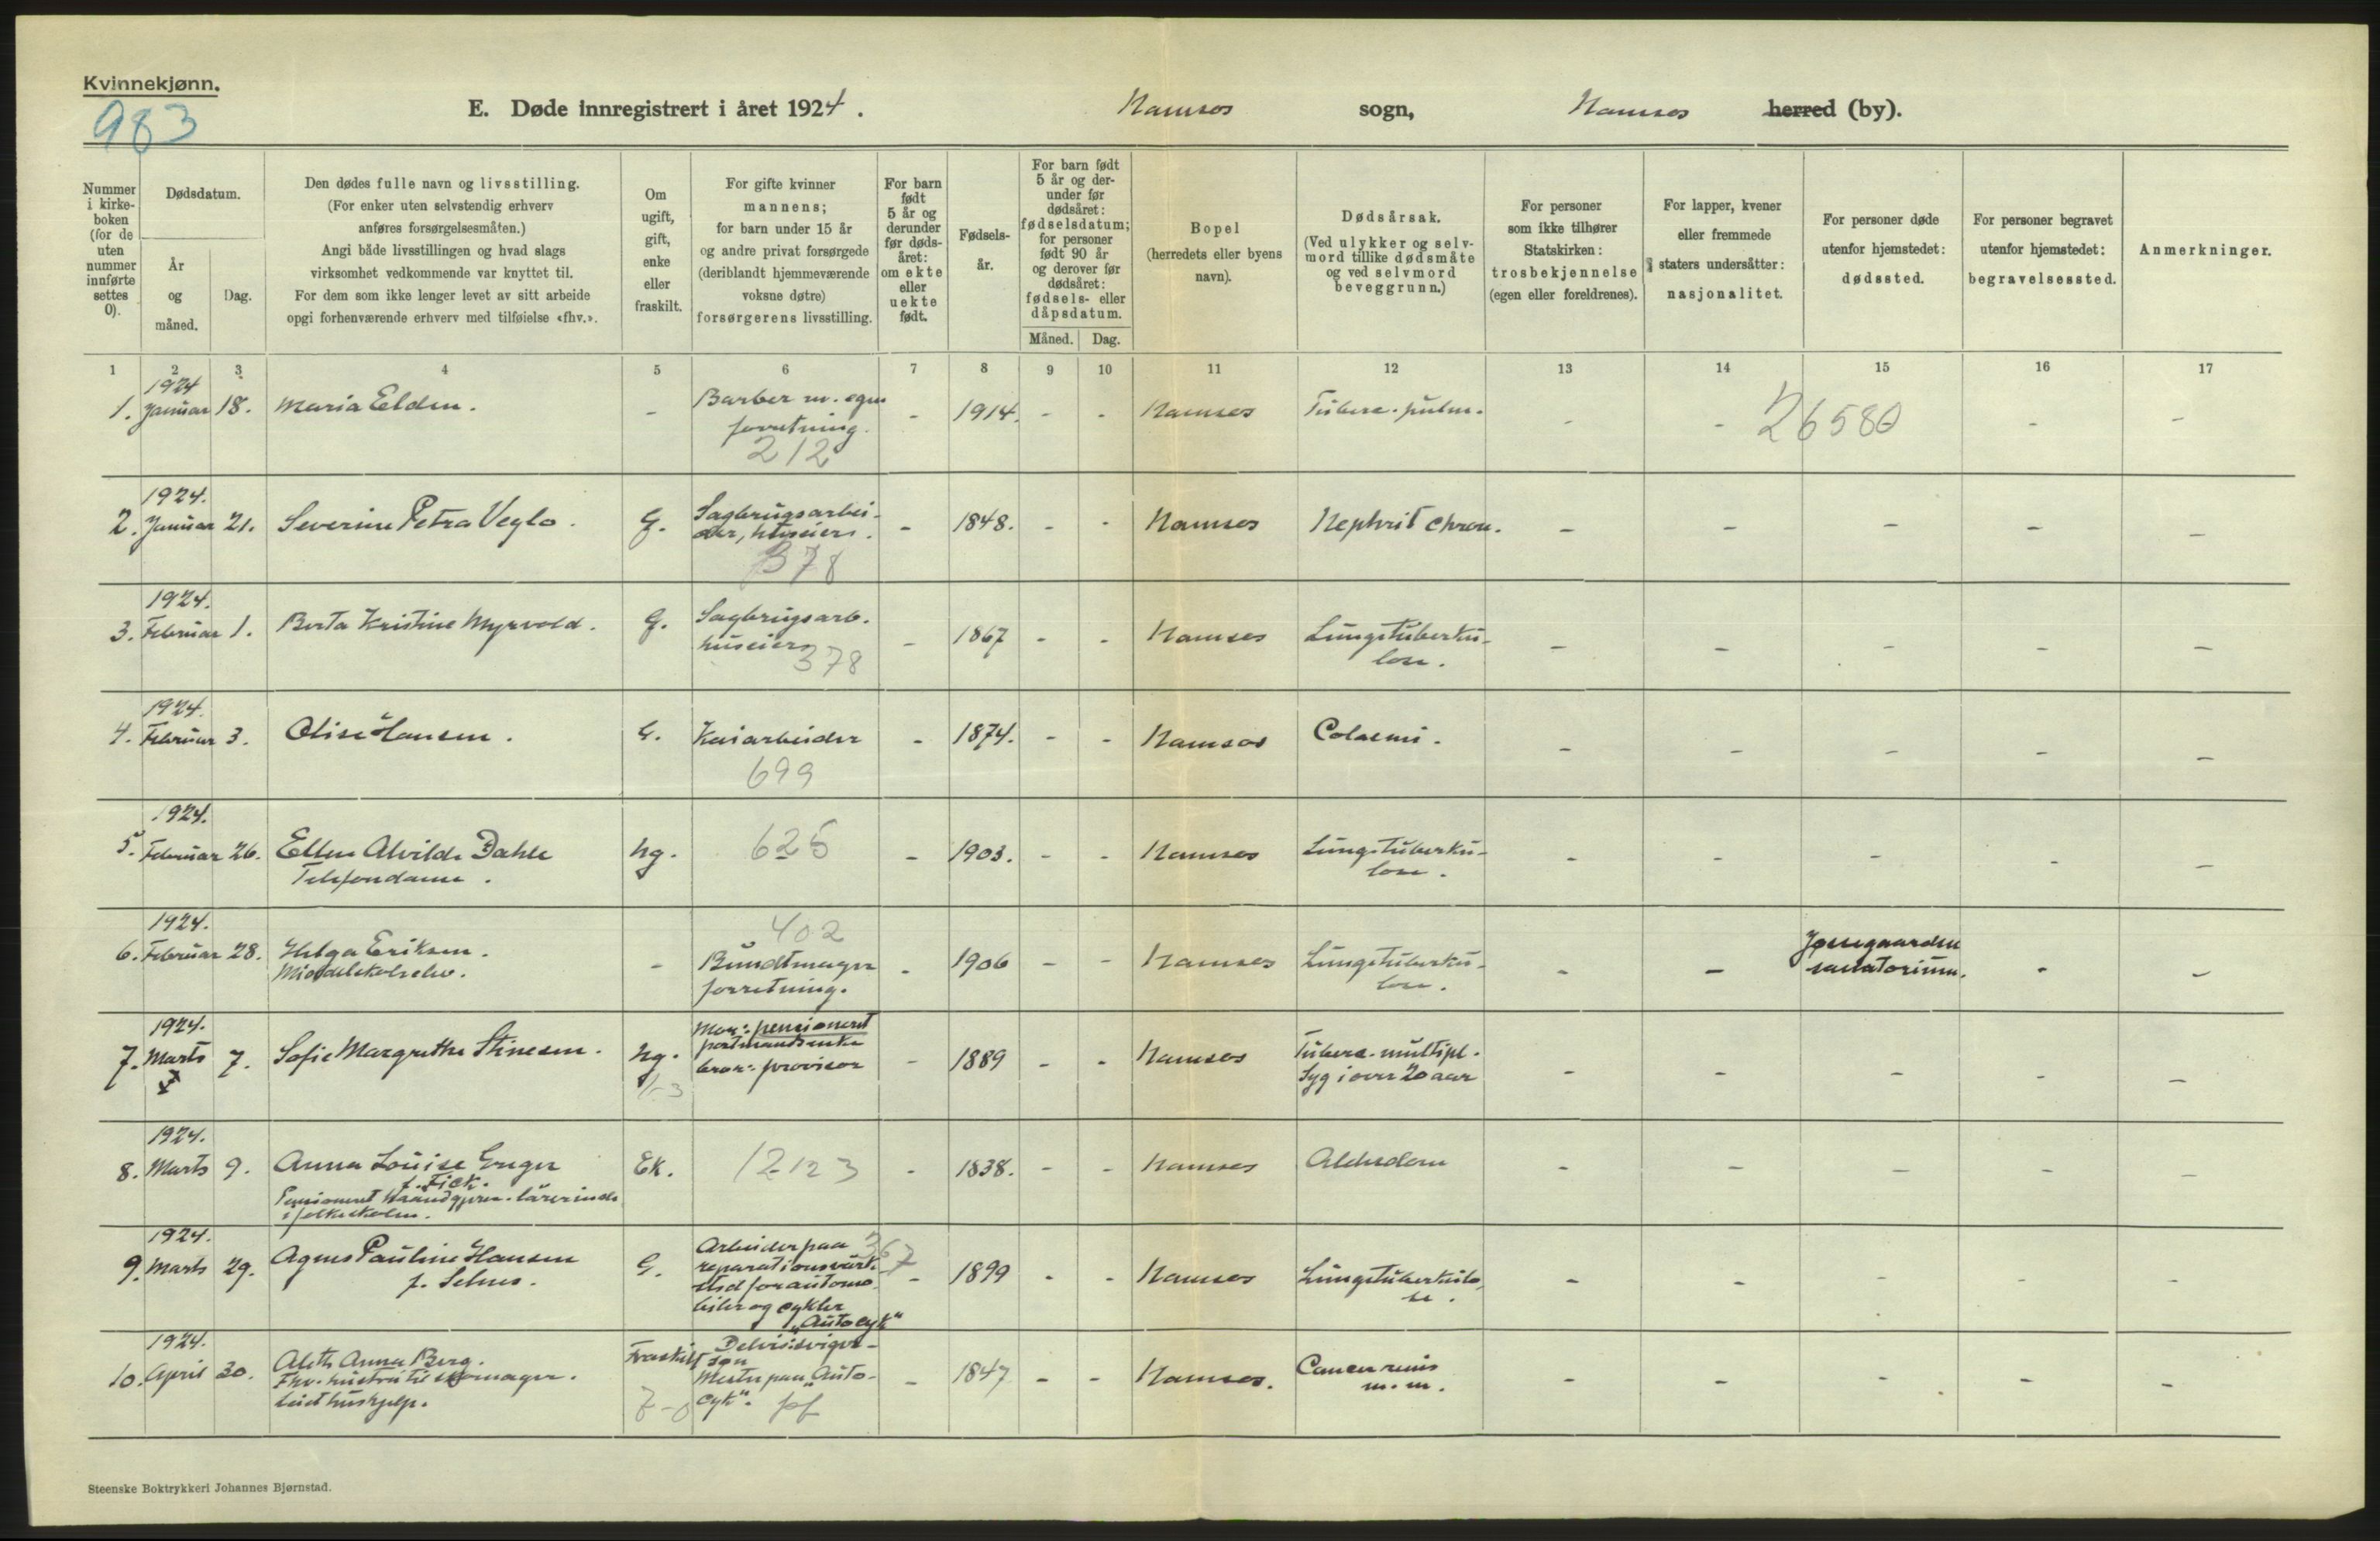 Kvinnekjønn.
983
E. Døde innregistrert i året 1924.
Namsos sogn, Namsos herred (by).
Nummer i kirkeboken (for de uten nummer innførte settes 0).
Dødsdatum.
År og måned.
Dag.
Den dødes fulle navn og livsstilling.
(For enker uten selvstendig erhverv
anføres forsørgelsesmåten.)
Angi både livsstillingen og hvad slags
virksomhet vedkommende var knyttet til.
For dem som ikke lenger levet av sitt arbeide
opgi forhenværende erhverv med tilføielse «fhv.».
Om
ugift,
gift,
enke
eller
fraskilt.
For gifte kvinner
mannens;
for barn under 15 år
og andre privat forsørgede
(deriblandt hjemmeværende
voksne døtre)
forsørgerens livsstilling.
For barn
født
5 år og
derunder
før døds-
året:
om ekte
eller
uekte
født.
Fødsels-
år.
For barn født
5 år og der-
under før
dødsåret:
fødselsdatum;
for personer
født 90 år
og derover før
dødsåret:
fødsels- eller
dåpsdatum.
Måned. Dag.
Bopel
(herredets eller byens
navn).
Dødsårsak.
(Ved ulykker og selv-
mord tillike dødsmåte
og ved selvmord
beveggrunn.)
For personer
som ikke tilhører
Statskirken:
trosbekjennelse
(egen eller foreldrenes).
For lapper, kvener
eller fremmede
staters undersåtter:
nasjonalitet.
For personer døde
utenfor hjemstedet:
dødssted.
For personer begravet
utenfor hjemstedet:
begravelsessted.
Anmerkninger.
1 2 3 4 5 6 7 8 9 10 11 12 13 14 15 16 17
1924
1. Januar 18. Maria Elden. - Barber m. egen - 1914. - - Namsos Tuberc. pulm. - - 26580 - -
forretning.
212
1924.
2. Januar 21. Severine Petra Veglo. G. Sagbrugsarbei- - 1848. - - Namsos Nephrit chron. - - - - -
der, huseiers.
378
1924.
3. Februar 1. Berta Kristine Myrvold. G. Sagbrugsarb. - 1867 - - Namsos Lungetuberku- - - - - -
huseiers lose.
378
1924.
4. Februar 3. Olise Hansen. G. Kaiarbeider - 1874. - - Namsos Colaemi. - - - - -
699
1924.
5. Februar 26. Ellen Alvilde Dahle Ug. 625 - 1903. - - Namsos Lungetuberku- - - - - -
Telefondame. lose.
1924.
402
6. Februar 28. Helga Eriksen. - Bundtmager - 1906 - - Namsos Lungetuberku- - - Jøssegaarden - -
Middelskoleelev. forretning. lose. sanatorium.
1924.
7. Marts 7. Sofie Margrethe Stinesen. Ug. Mor: pensioneret - 1889 - - Namsos Tuberc. multipl. - - - - -
postmandsenke
bror: provisor Syg i over 20 aar
1924.
8. Marts 9. Anna Louise Enger Ek. 12123 - 1838. - - Namsos Alderdom - - - - -
f. Fick.
Pensioneret Haandgjern. lärerinde
i folkeskolen.
1924.
9. Marts 29. Agnes Pauline Hansen G. Arbeider paa 367 - 1899 - - Namsos Lungetuberkulo- - - - - -
f. Selnes. reparationsverk- se.
sted for automo-
biler og cykler
"Autocyk"
1924.
10. April 30. Aleth Anna Berg. Fraskilt Delvis sviger- - 1847 - - Namsos. Cancer renis - - - - -
Fhv. hustru til skomager. søn m.m.
leiet hushjelp. Mester paa "Auto-
cyk". pf
Steenske Boktrykkeri Johannes Bjørnstad.